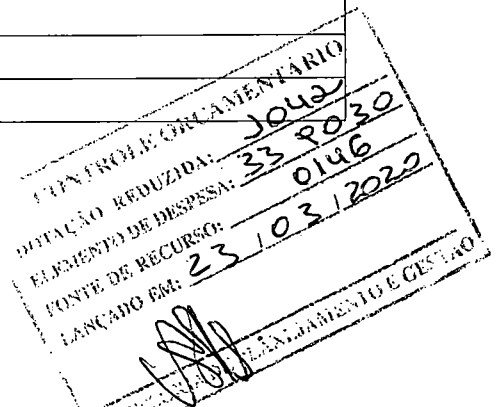 CONTROLE ORÇAMENTÁRIO
DOTAÇÃO REDUZIDA: 1042
ELEMENTO DE DESPESA: 339030
FONTE DE RECURSO: 0146
LANÇADO EM: 23 / 03 / 2020
PLANEJAMENTO E GESTÃO